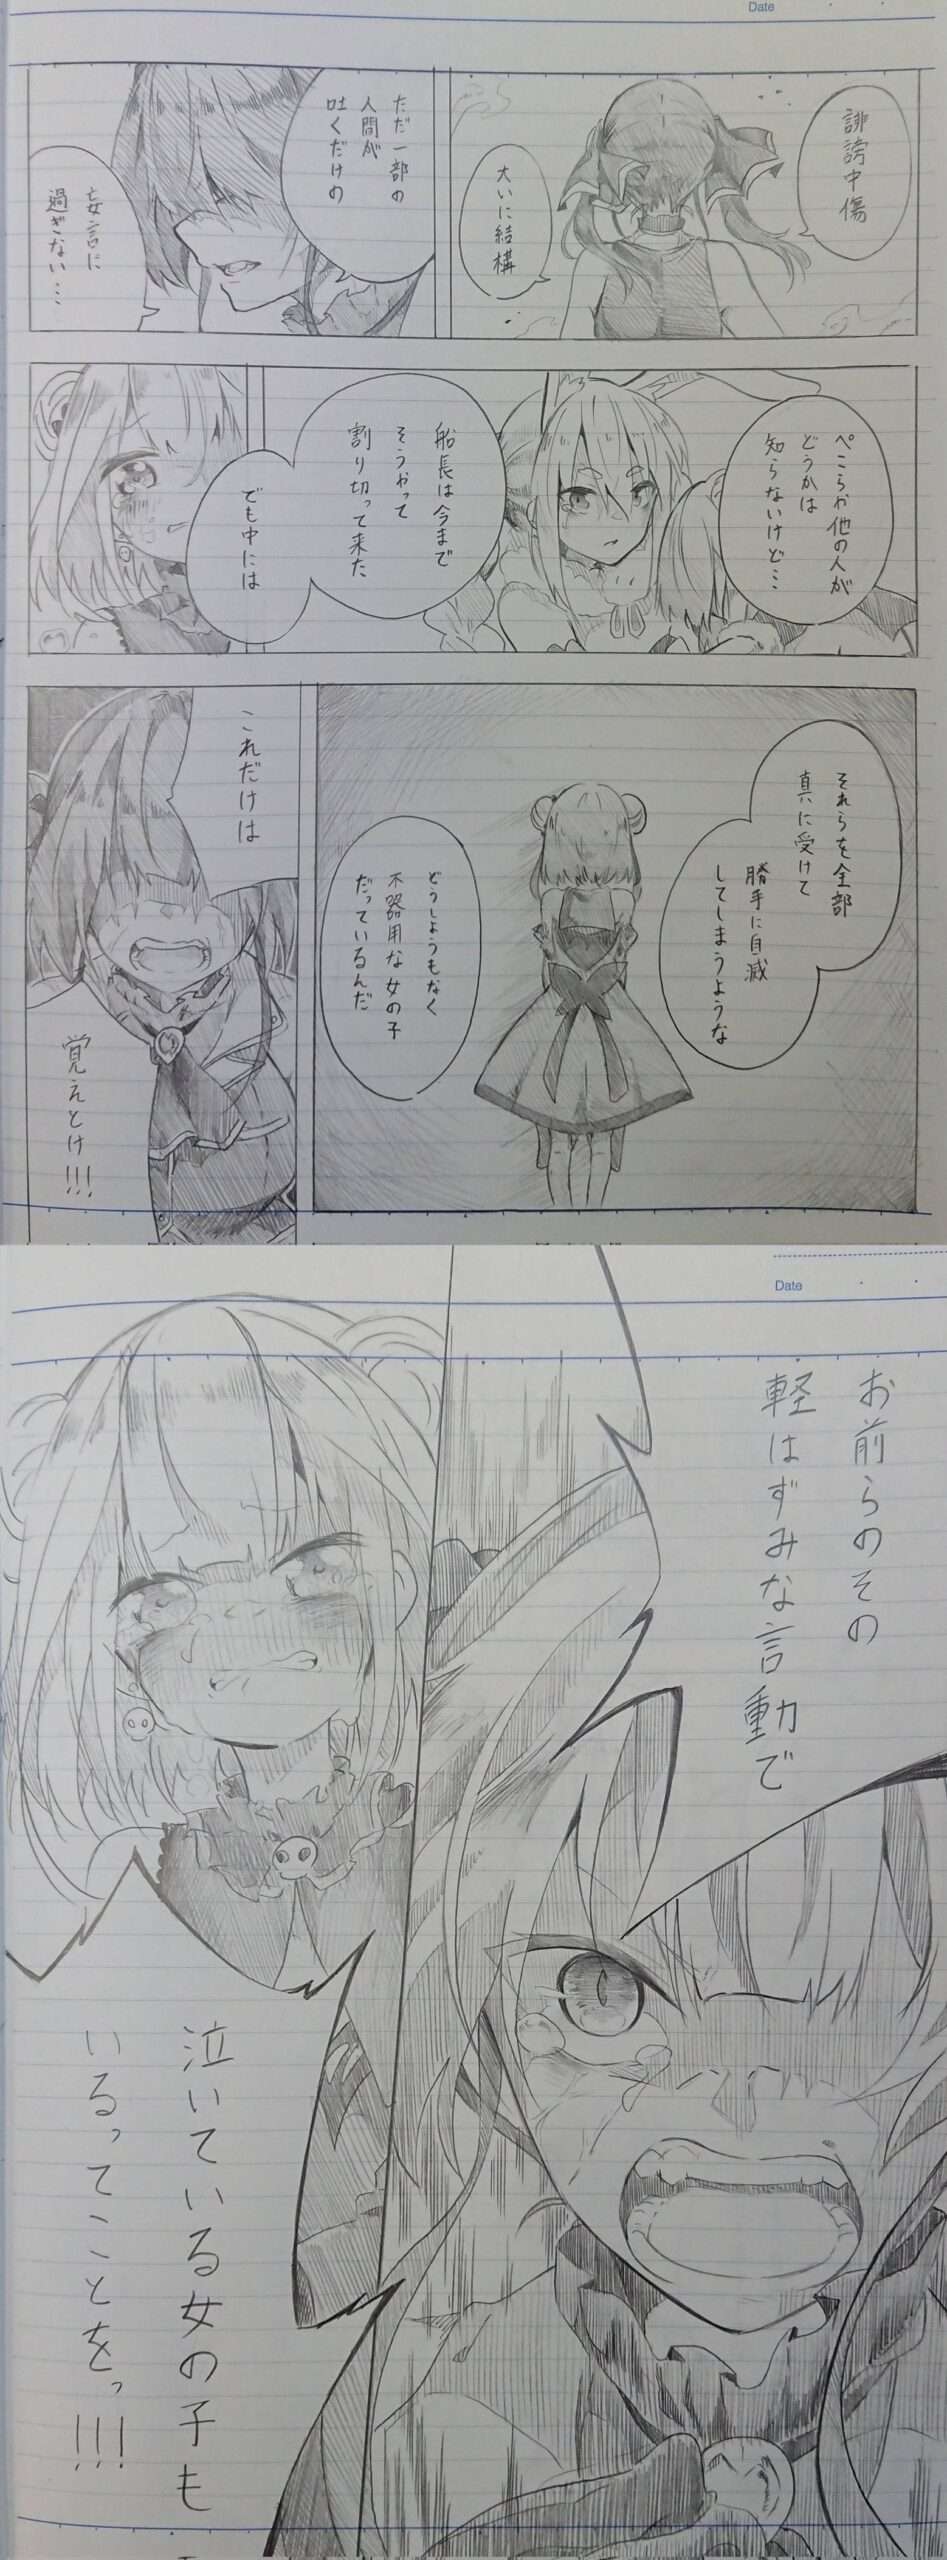 Date
誹謗中傷
大いに結構
ただ一部の
人間が
吐くだけの
妄言に
過ぎない…
ぺこらや他の人が
どうかは
知らないけど…
船長は今まで
そうやって
割り切って来た
でも中には
それらを全部
真に受けて
勝手に自滅
してしまうような
どうしようもなく
不器用な女の子
だっているんだ
これだけは
覚えとけ!!!
Date
お前らのその
軽はずみな言動で
泣いている女の子も
いるってことをっ!!!